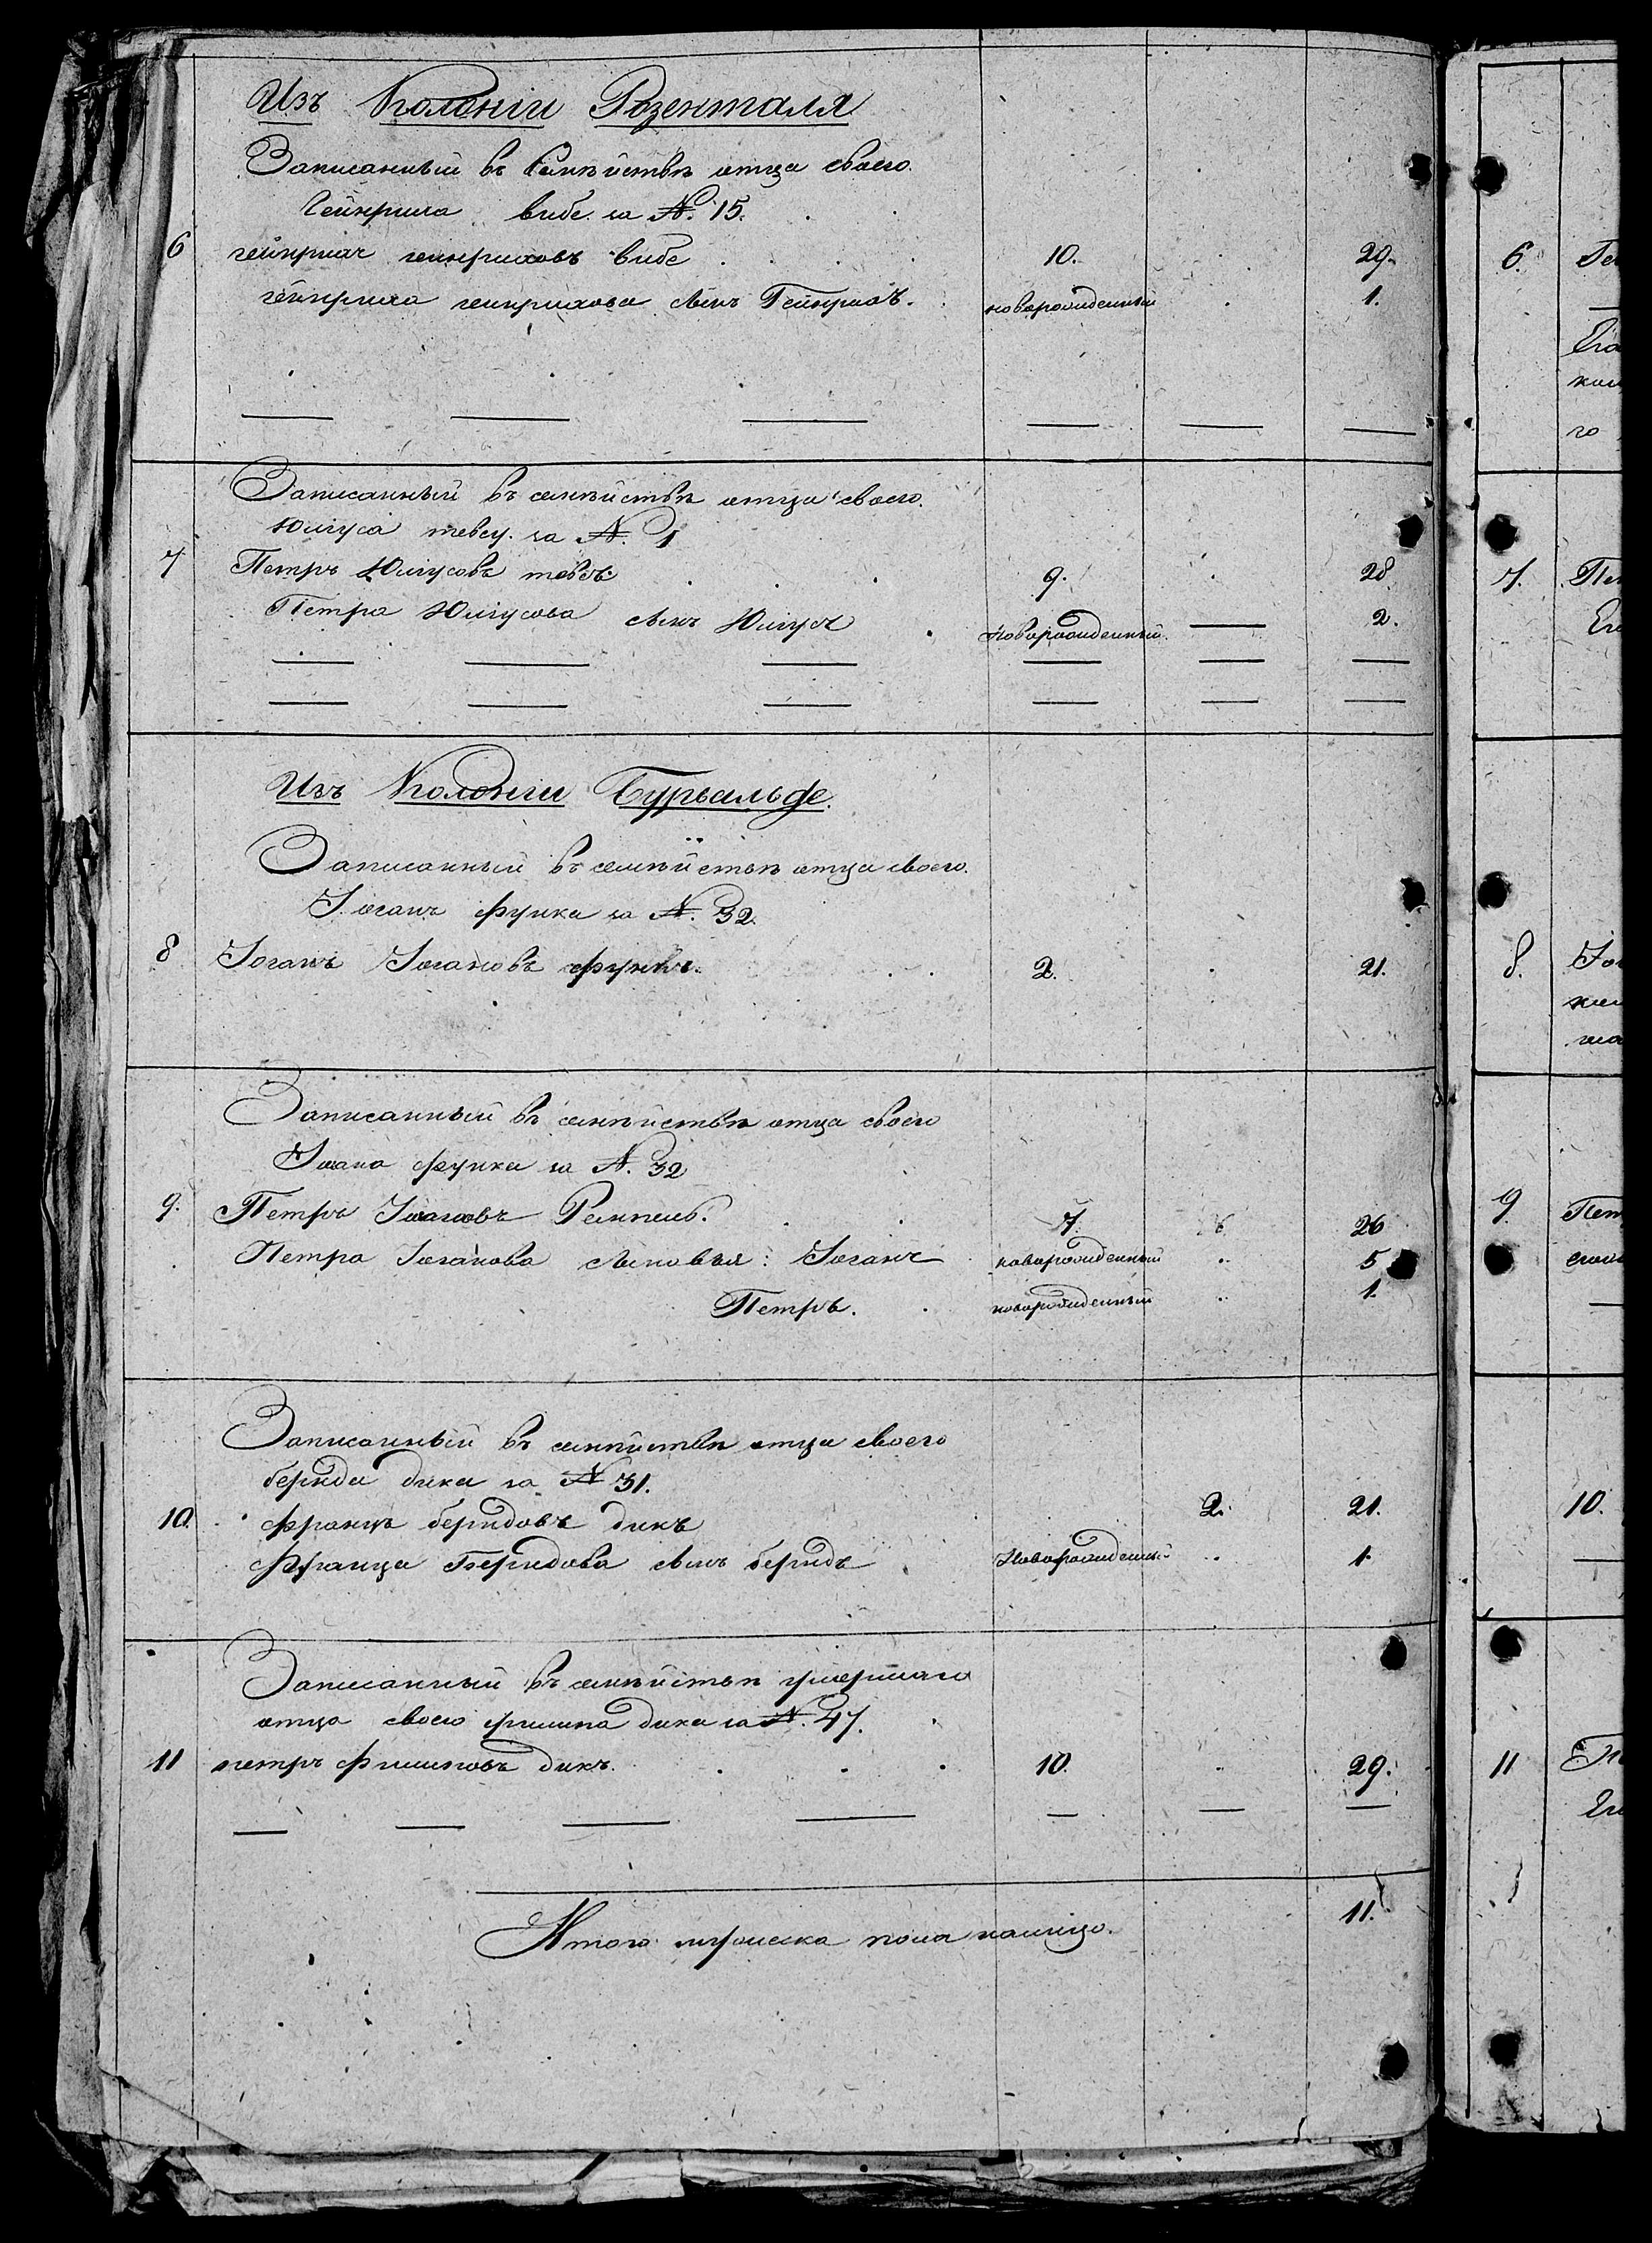 Изъ Колоніи Розенталя
Записанный въ Семѣйствѣ отца своего.
Гейнриха вибе за №. 15.
6 гейнрихъ гейнриховъ вибе 10. 29.
гейнриха гейнрихова сынъ Гейнрихъ. новорожденный 1.
Записанный въ семѣйствѣ отца своего.
Юлиуса тевсу. за №. 1
7 Петръ Юлиусовъ тевсъ 9. 28.
Петра Юлиусова сынъ Юлиусъ новорожденный 2.
Изъ Колоніи Бурвальде.
Записанный въ семѣйствѣ отца своего.
Іоганъ функа за №. 32.
8 Іоганъ Іогановъ функъ. 2. 21.
Записанный въ семѣйствѣ отца своего
Іогана функа за №. 32
9. Петръ Іогановъ Ремпель. 7. 26
Петра Іоганова сыновья: Іоганъ новорожденный 5
Петръ. новорожденный 1.
Записанный въ семѣйствѣ отца своего
бернда дика за № 31.
10. францъ берндовъ дикъ 2. 21.
Франца Берндова сынъ берндъ Новорожденный 1.
Записанный въ семѣйствѣ умершаго
отца своего филипа дика за №. 47.
11 петръ Филиповъ дикъ. 10. 29.
Итого мужеска пола налицо. 11.
6. Ге
Его
го
7. Пет
Ег
8. Іог
9. Пет
10.
11
Ег